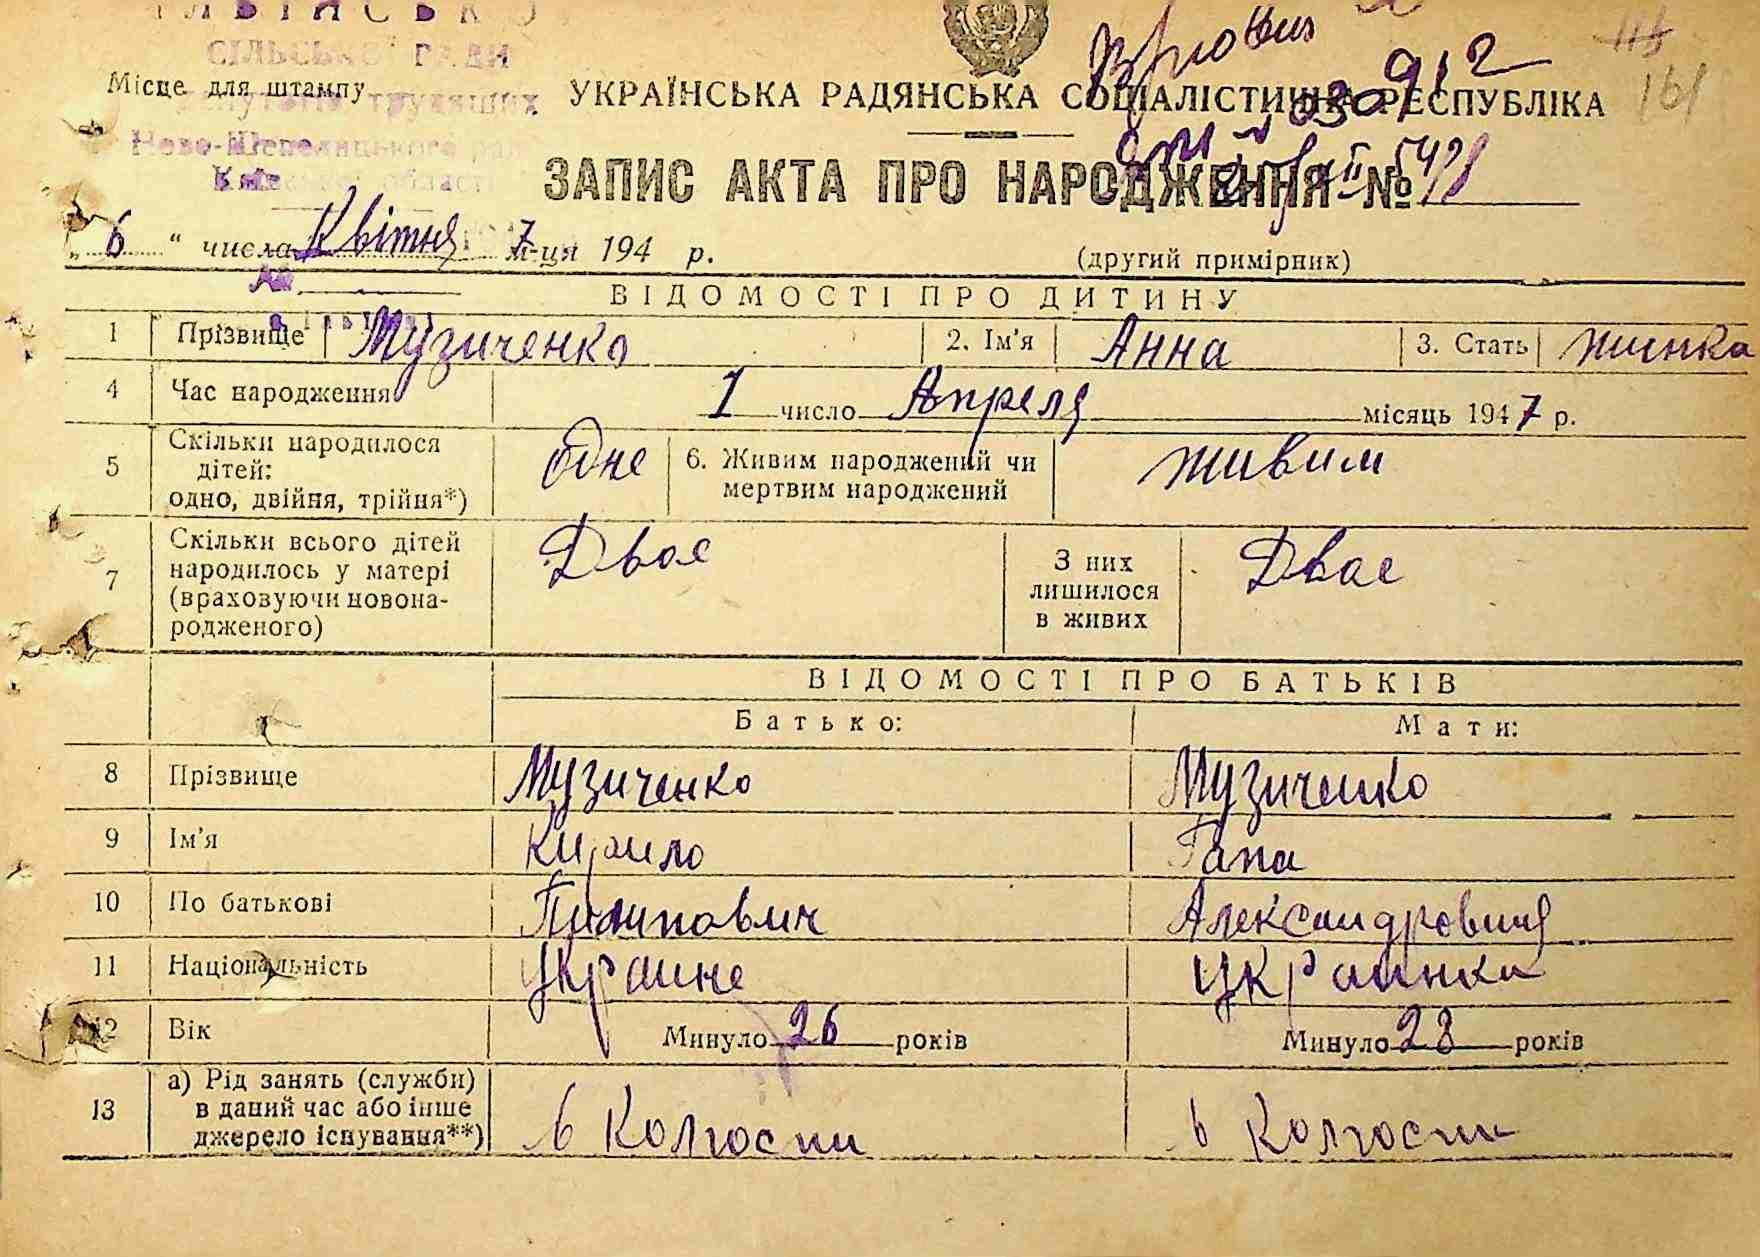 СІЛЬСЬКО РАДИ
Місце для штампу
трудящих
Ново-Шепелицького
області
УКРАЇНСЬКА РАДЯНСЬКА СОЦІАЛІСТИЧНА РЕСПУБЛІКА
ЗАПИС АКТА ПРО НАРОДЖЕННЯ №
„ 6 “ числа Квітня м-ця 1947 р.
(другий примірник)
ВІДОМОСТІ ПРО ДИТИНУ
1 Прізвище Музиченко 2. Ім'я Анна 3. Стать жинка
4 Час народження 1 число Апреля місяць 1947 р.
5 Скільки народилося дітей: одно, двійня, трійня*) Одне 6. Живим народжений чи мертвим народжений живим
7 Скільки всього дітей народилось у матері (враховуючи новонародженого) Двое З них лишилося в живих Двое
ВІДОМОСТІ ПРО БАТЬКІВ
Батько: Мати:
8 Прізвище Музиченко Музиченко
9 Ім'я Кирило Гапа
10 По батькові Пилипович Александровния
11 Національність Украине Украинка
12 Вік Минуло 26 років Минуло 28 років
13 а) Рід занять (служби) в даний час або інше джерело існування**) в Колгоспи в Колгоспи